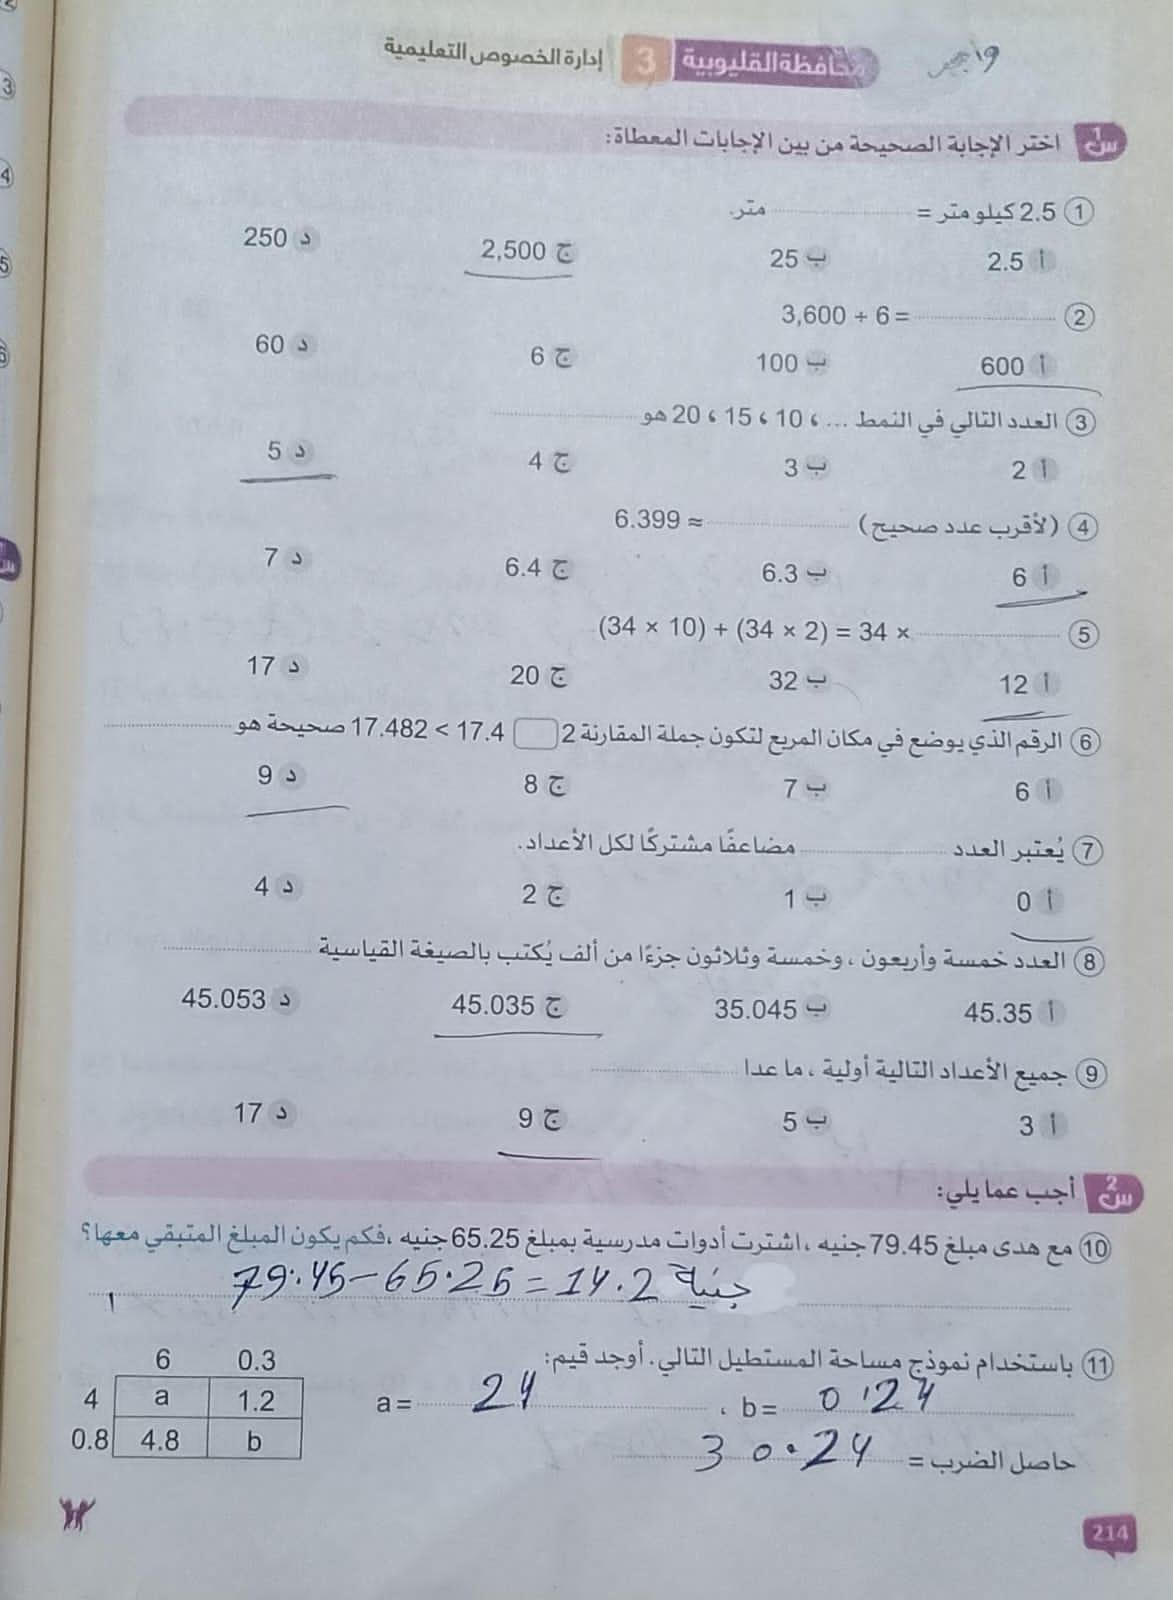 واجب
محافظة القليوبية 3 إدارة الخصوص التعليمية
س1 اختر الإجابة الصحيحة من بين الإجابات المعطاة:
1 2.5 كيلو متر = ........ متر.
أ 2.5 ب 25 ج 2,500 د 250
2 3,600 ÷ 6 = ........
أ 600 ب 100 ج 6 د 60
3 العدد التالي في النمط ... ، 10 ، 15 ، 20 هو ........
أ 2 ب 3 ج 4 د 5
4 6.399 ≈ ........ (لأقرب عدد صحيح)
أ 6 ب 6.3 ج 6.4 د 7
5 (34 × 10) + (34 × 2) = 34 × ........
أ 12 ب 32 ج 20 د 17
6 الرقم الذي يوضع في مكان المربع لتكون جملة المقارنة 17.482 < 17.4□2 صحيحة هو ........
أ 6 ب 7 ج 8 د 9
7 يُعتبر العدد ........ مضاعفًا مشتركًا لكل الأعداد.
أ 0 ب 1 ج 2 د 4
8 العدد خمسة وأربعون ، وخمسة وثلاثون جزءًا من ألف يُكتب بالصيغة القياسية ........
أ 45.35 ب 35.045 ج 45.035 د 45.053
9 جميع الأعداد التالية أولية ، ما عدا ........
أ 3 ب 5 ج 9 د 17
س2 أجب عما يلي:
10 مع هدى مبلغ 79.45 جنيه ، اشترت أدوات مدرسية بمبلغ 65.25 جنيه ،فكم يكون المبلغ المتبقي معها؟
79.45 – 65.25 = 14.2 جنية
11 باستخدام نموذج مساحة المستطيل التالي. أوجد قيم:
6 0.3
4 a 1.2
0.8 4.8 b
a = 24 ، b = 0.24
حاصل الضرب = 30.24
214